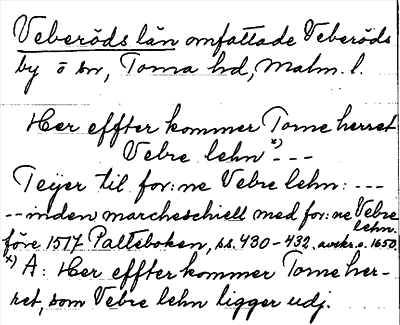 Veberöds län omfattade Veberöds
by o sn, Torna hd, Malm. l.
Her effter kommer Torne herret
Vebre lehn x) - - -
Teÿer til for:ne Vebre lehn: - - -
- - inden marcheschiell med for:ne Vebre
lehn.
före 1517 Palteboken, ss. 430-432. avskr. o. 1650.
x) A: Her effter kommer Torne her-
ret, som Vebre lehn ligger udj.